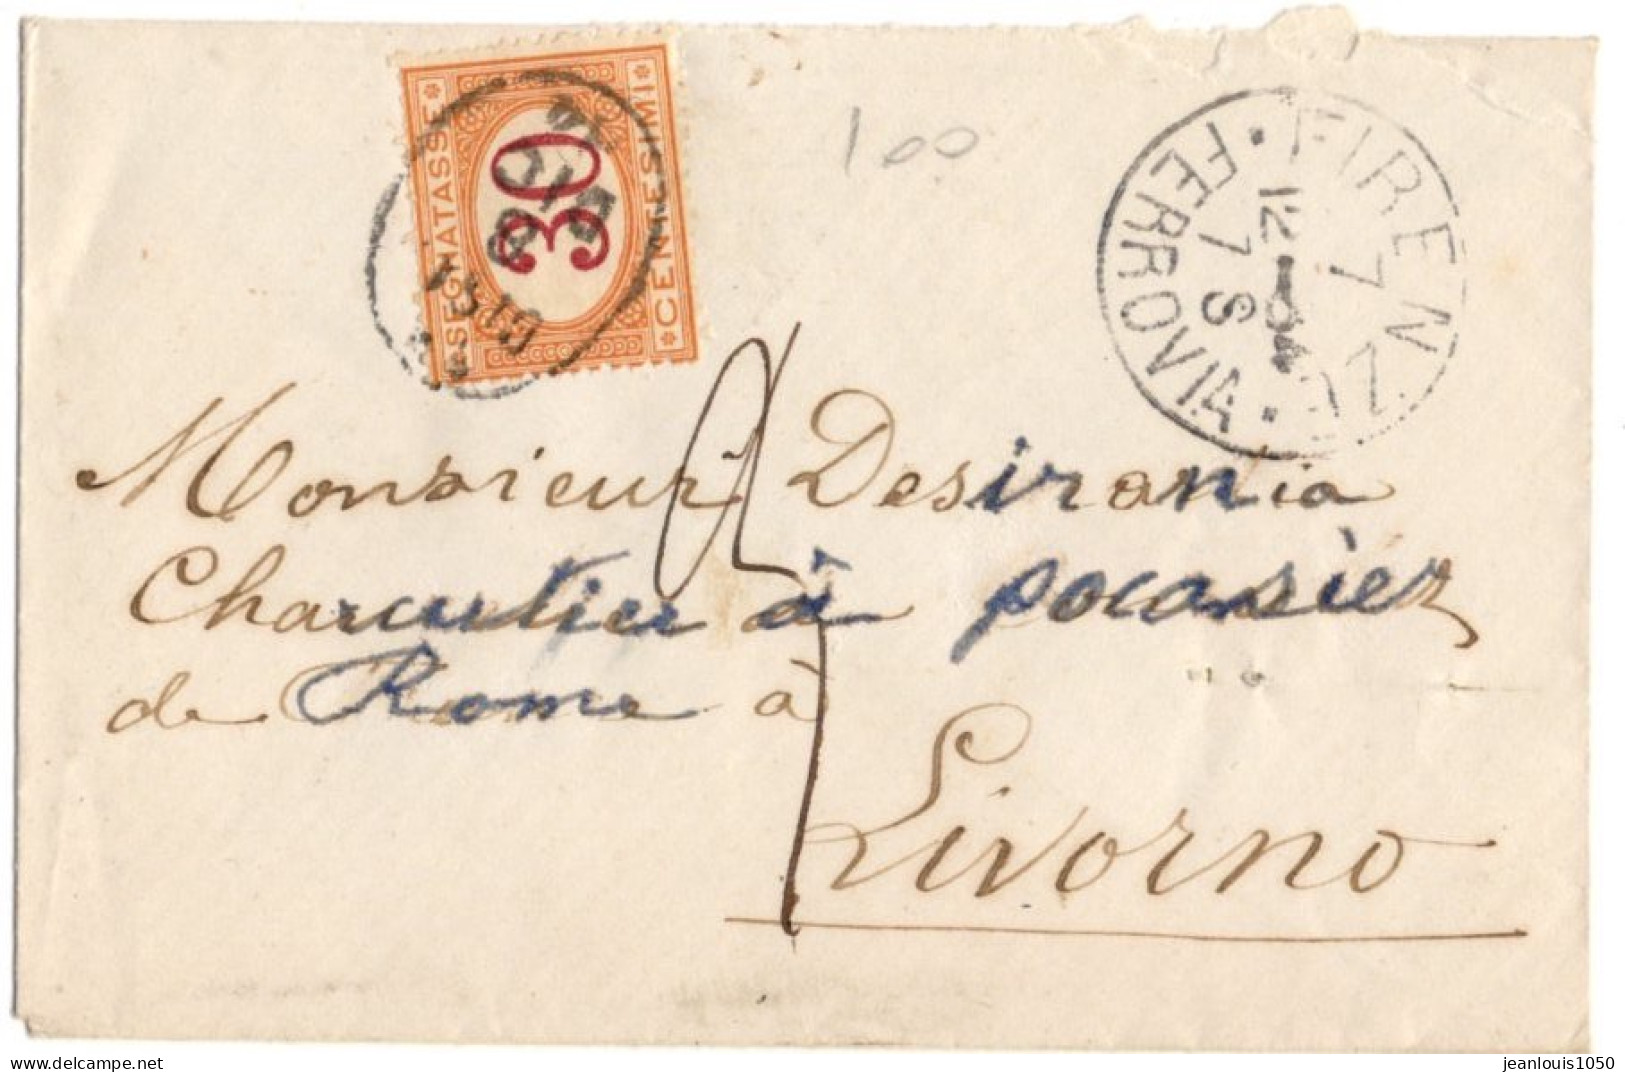 SEGNATASSE
30
CENTESIMI
100
FIRENZE
FERROVIA
7
12 - 84
7 S
Monsieur Desirania
Charcutier à
de Rome à
Livorno
delcampe.net
jeanlouis1050